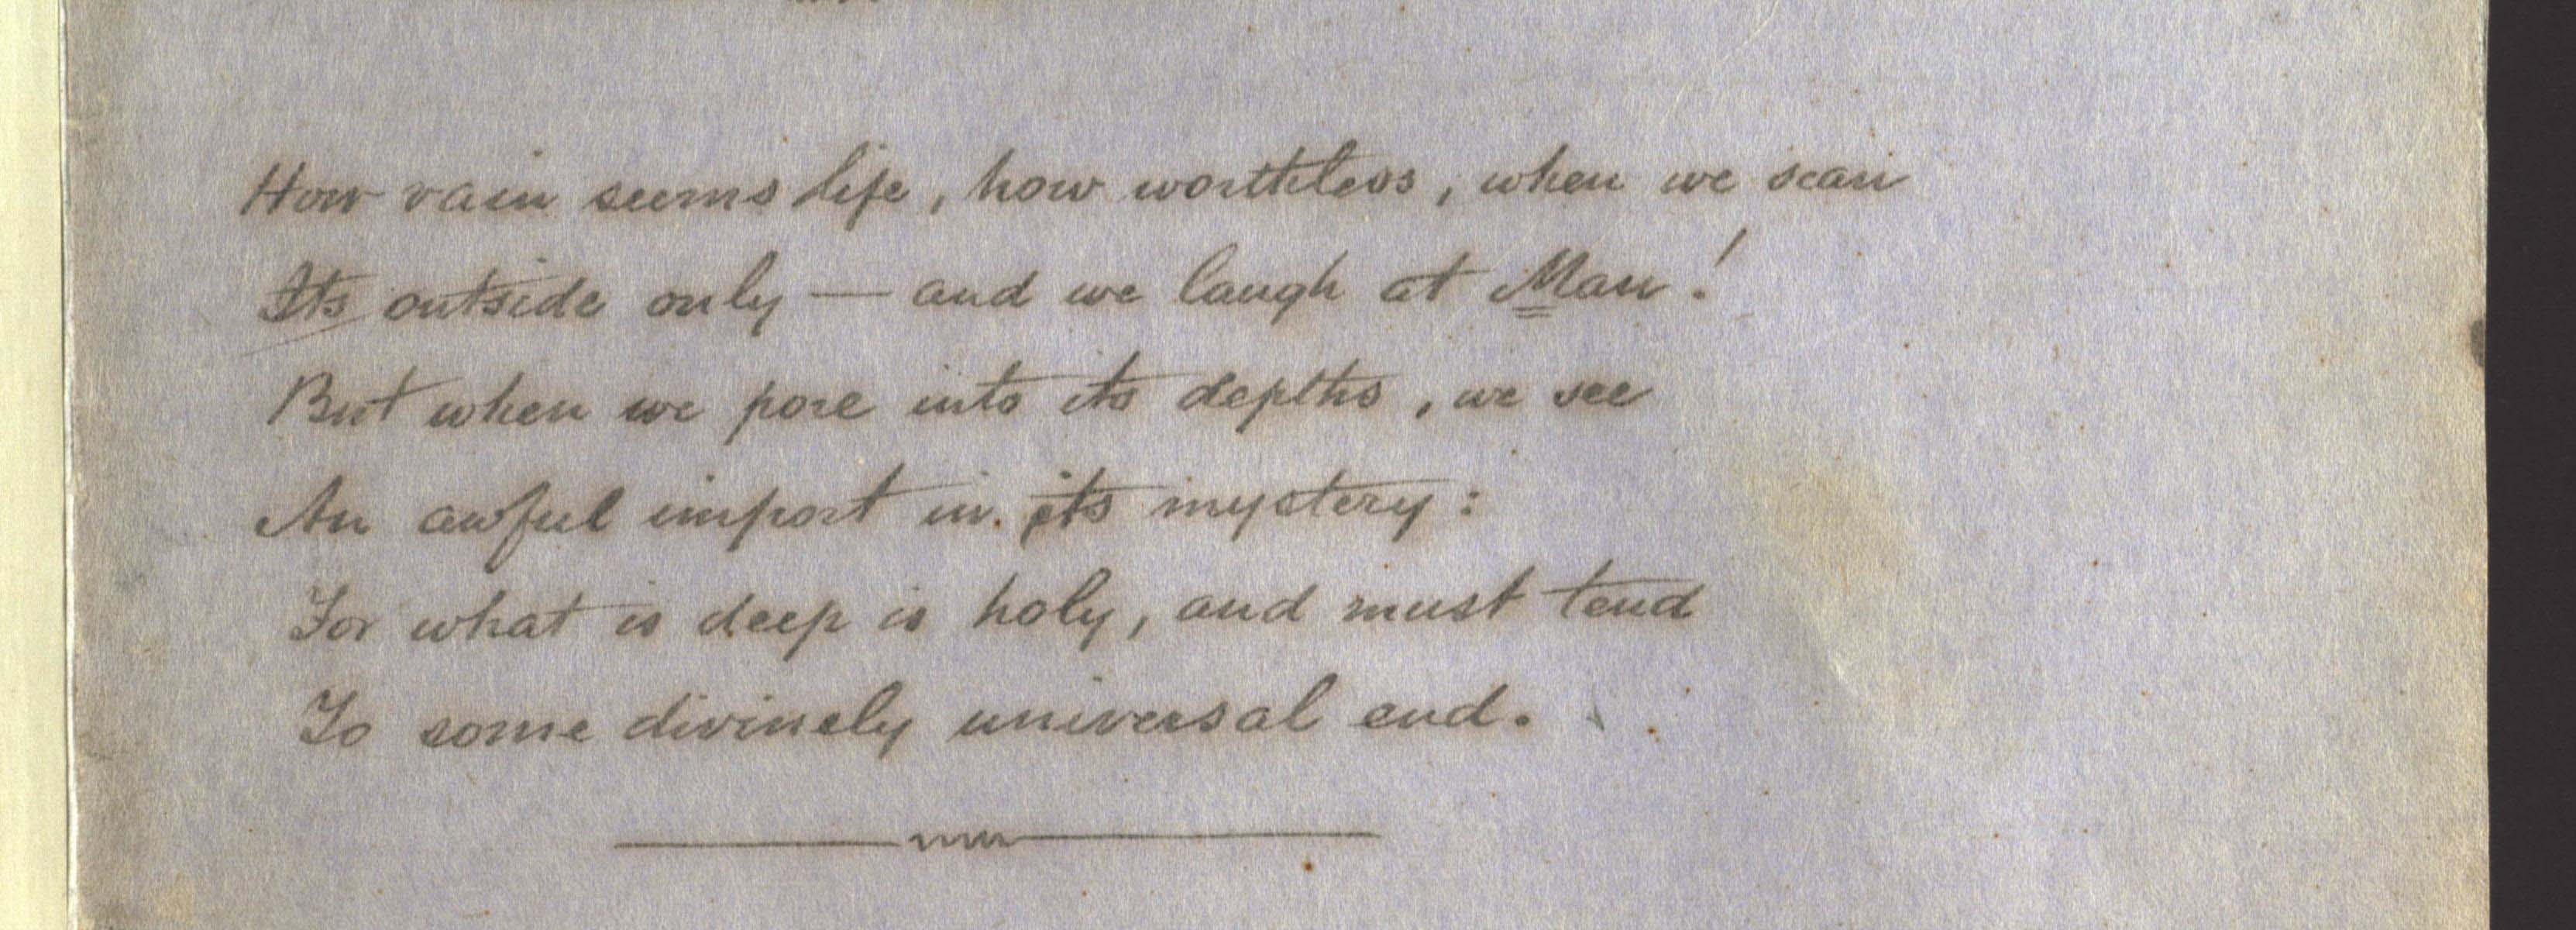 How vain seems life, how worthless, when we scan
Its outside only — and we laugh at Man!
But when we pore into its depths, we see
An awful import in its mystery:
For what is deep is holy, and must tend
To some divinely universal end.